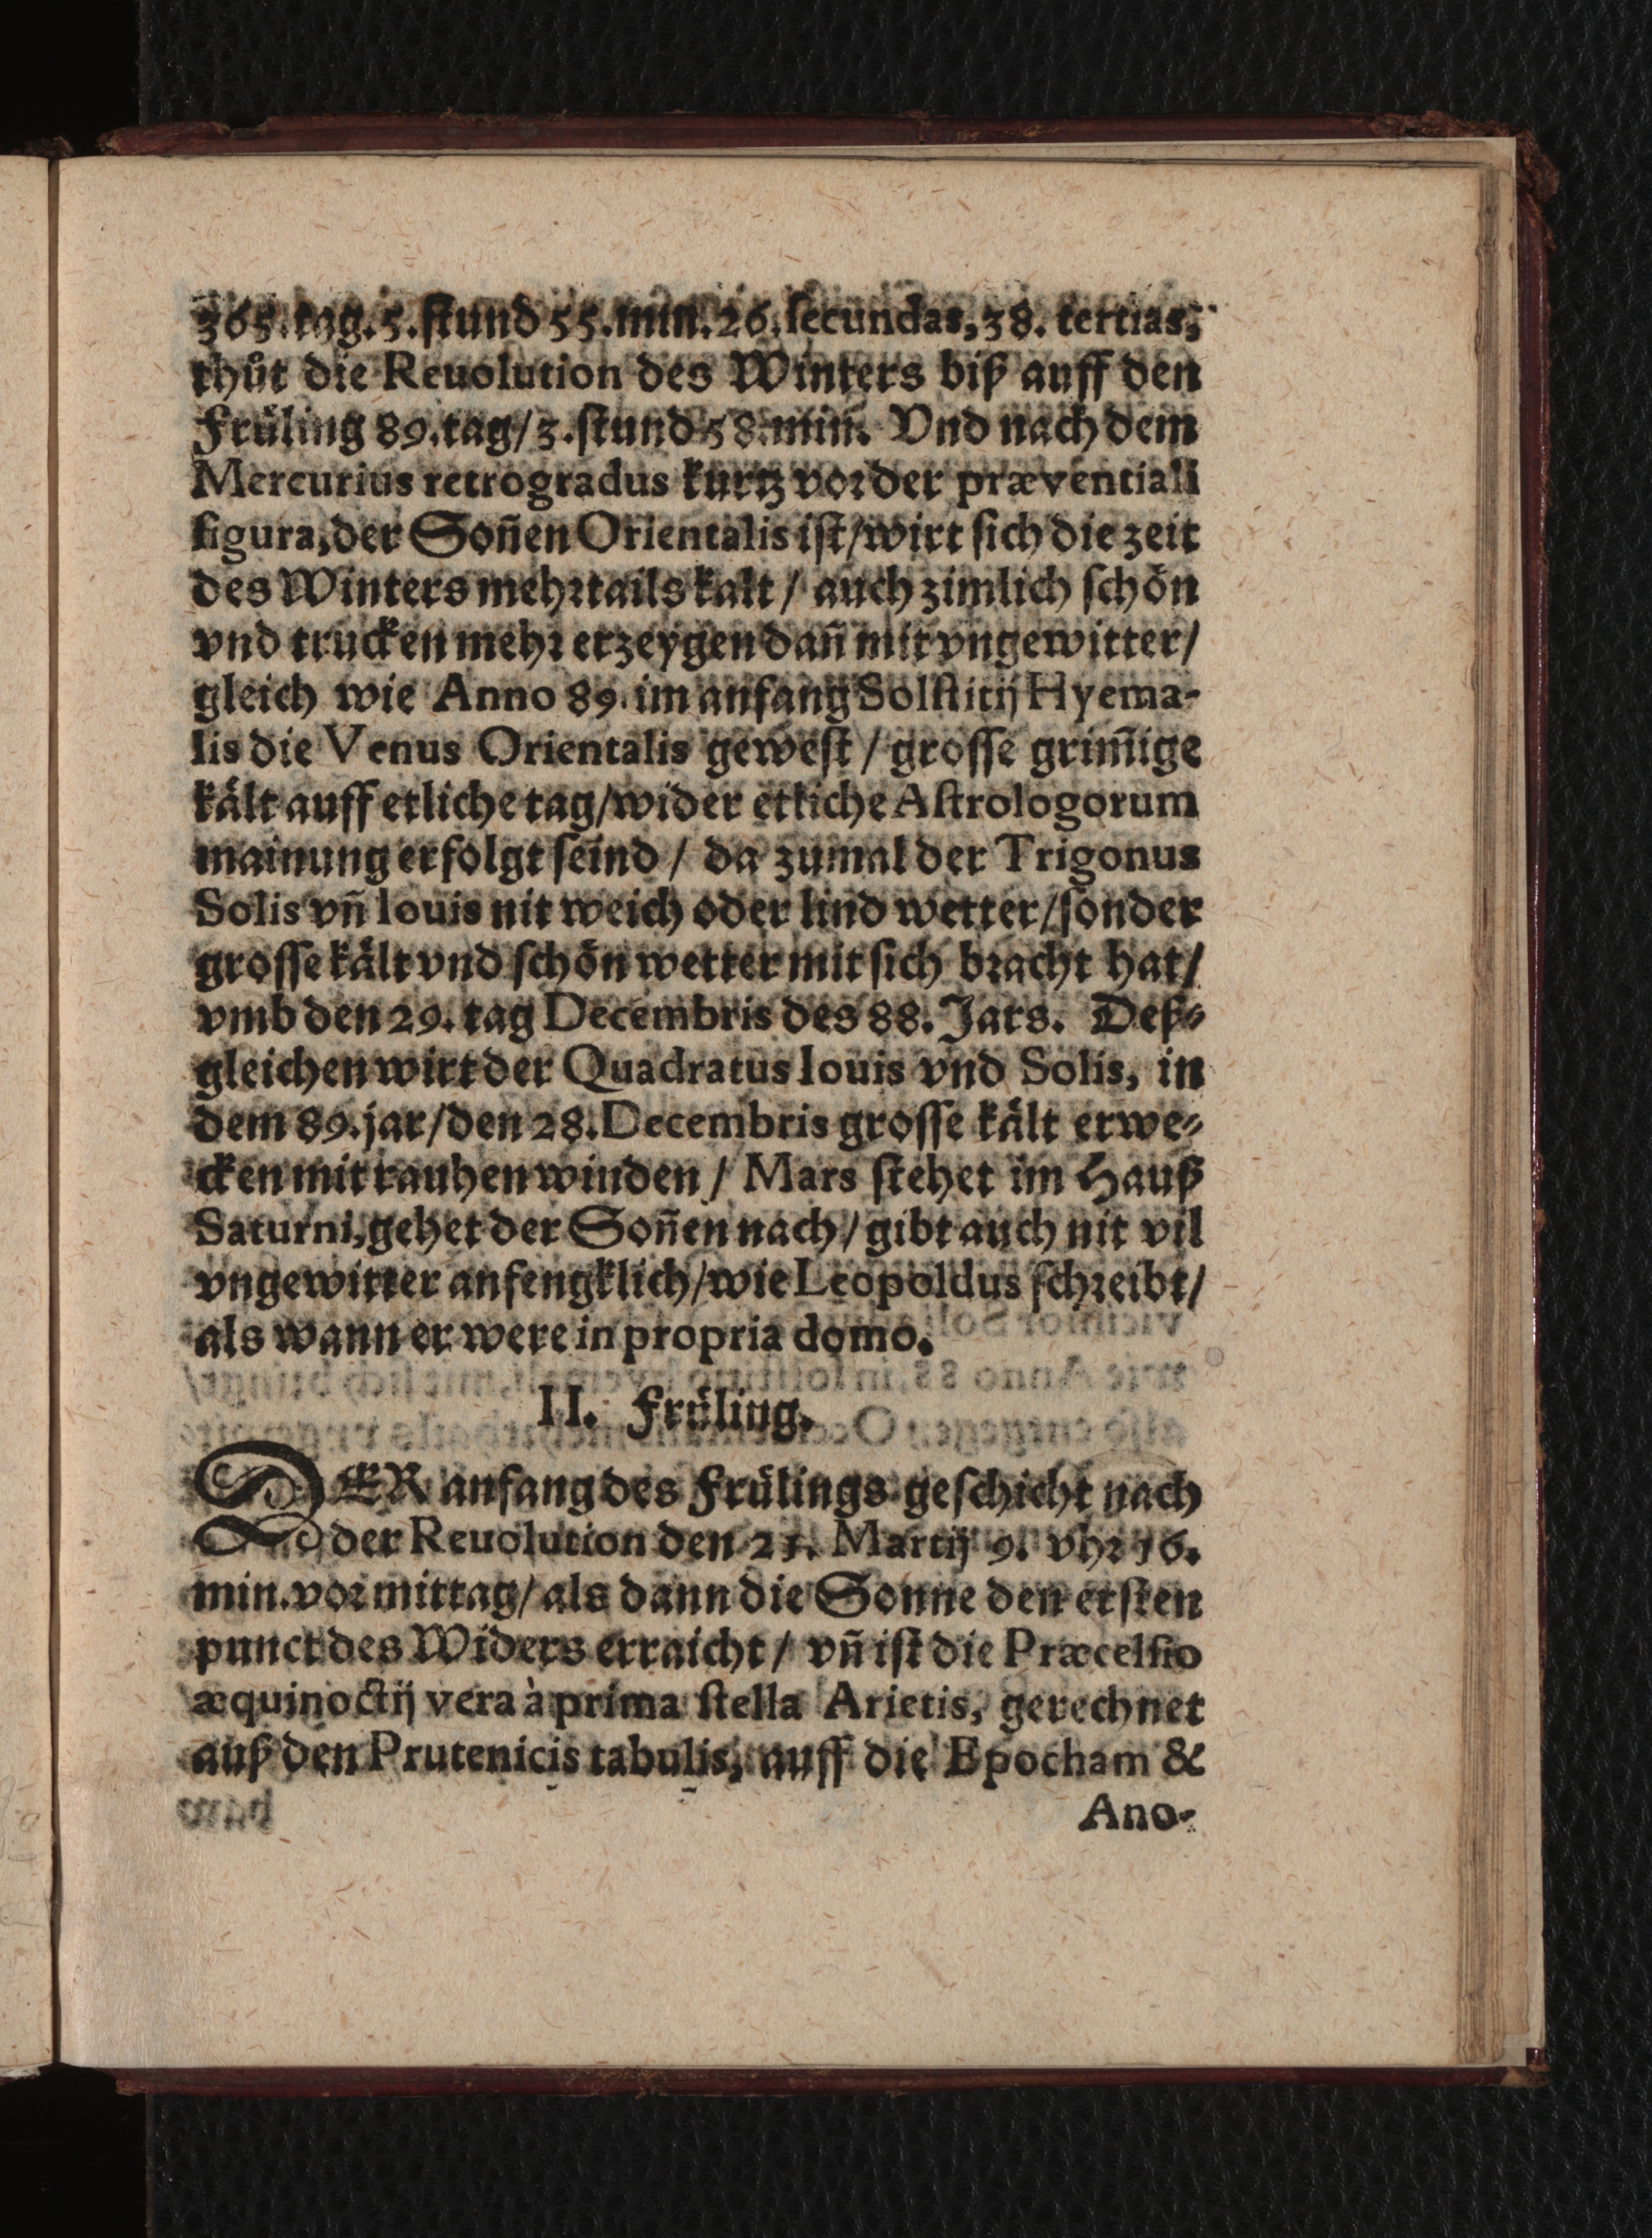 365. tag. 5. ſtund 55. min. 26. ſecundas, 38. tertias,
thůt die Reuolution des Winters biß auff den
Früling 89. tag/ 3. ſtund 58. min. Vnd nach dem
Mercurius retrogradus kurtz vor der præventiali
figura, der Soñen Orientalis iſt/ wirt ſich die zeit
des Winters mehrtails kalt/ auch zimlich ſchön
vnd trucken mehr erzeygen dañ mit vngewitter/
gleich wie Anno 89. im anfang Solſtitij Hyema-
lis die Venus Orientalis geweſt/ groſſe grim̃ige
kält auff etliche tag/ wider etliche Aſtrologorum
mainung erfolgt ſeind/ da zumal der Trigonus
Solis vñ Iouis nit weich oder lind wetter/ ſonder
groſſe kält vnd ſchön wetter mit ſich bracht hat/
vmb den 29. tag Decembris des 88. Jars. Deß-
gleichen wirt der Quadratus Iouis vnd Solis, in
dem 89. jar/ den 28. Decembris groſſe kält erwe-
cken mit rauhen winden/ Mars ſtehet im Hauß
Saturni, gehet der Soñen nach/ gibt auch nit vil
vngewitter anfengklich/ wie Leopoldus ſchreibt/
als wann er were in propria domo.
II. Früling.
DER anfang des Frülings geſchicht nach
der Reuolution den 21. Martij 9. vhr 16.
min. vormittag/ als dann die Sonne den erſten
punct des Widers erraicht/ vñ iſt die Præceſſio
æquinoctij vera à prima ſtella Arietis, gerechnet
auß den Prutenicis tabulis, auff die Epocham &
Ano-